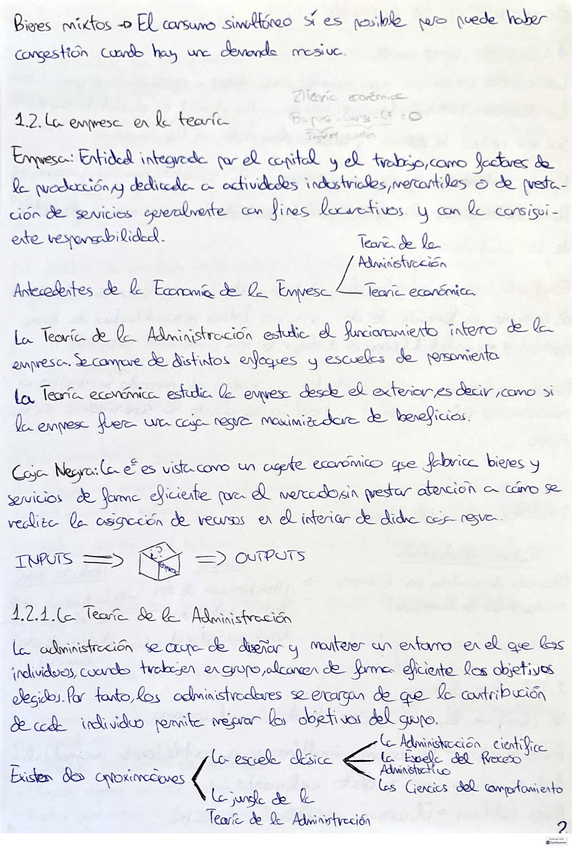 Bienes mixtos → El consumo simultáneo sí es posible pero puede haber
congestión cuando hay una demanda masiva.
2) Teoría económica
1.2. La empresa en la teoría
Empresa: Entidad integrada por el capital y el trabajo, como factores de
la producción, y dedicada a actividades industriales, mercantiles o de presta-
ción de servicios generalmente con fines lucrativos y con la consigui-
ente responsabilidad.
Antecedentes de la Economía de la Empresa
Teoría de la
Administración
Teoría económica
La Teoría de la Administración estudia el funcionamiento interno de la
empresa. Se compone de distintos enfoques y escuelas de pensamiento
La Teoría económica estudia la empresa desde el exterior, es decir, como si
la empresa fuera una caja negra maximizadora de beneficios.
Caja Negra: La eª es vista como un agente económico que fabrica bienes y
servicios de forma eficiente para el mercado, sin prestar atención a cómo se
realiza la asignación de recursos en el interior de dicha caja negra.
INPUTS ⇒ ⇒ OUTPUTS
1.2.1. La Teoría de la Administración
La administración se ocupa de diseñar y mantener un entorno en el que los
individuos, cuando trabajen en grupo, alcancen de forma eficiente los objetivos
elegidos. Por tanto, los administradores se encargan de que la contribución
de cada individuo permita mejorar los objetivos del grupo.
Existen dos aproximaciones
La escuela clásica
La Administración científica
La Escuela del Proceso
Administrativo
Las Ciencias del comportamiento
La jungla de la
Teoría de la Administración
2